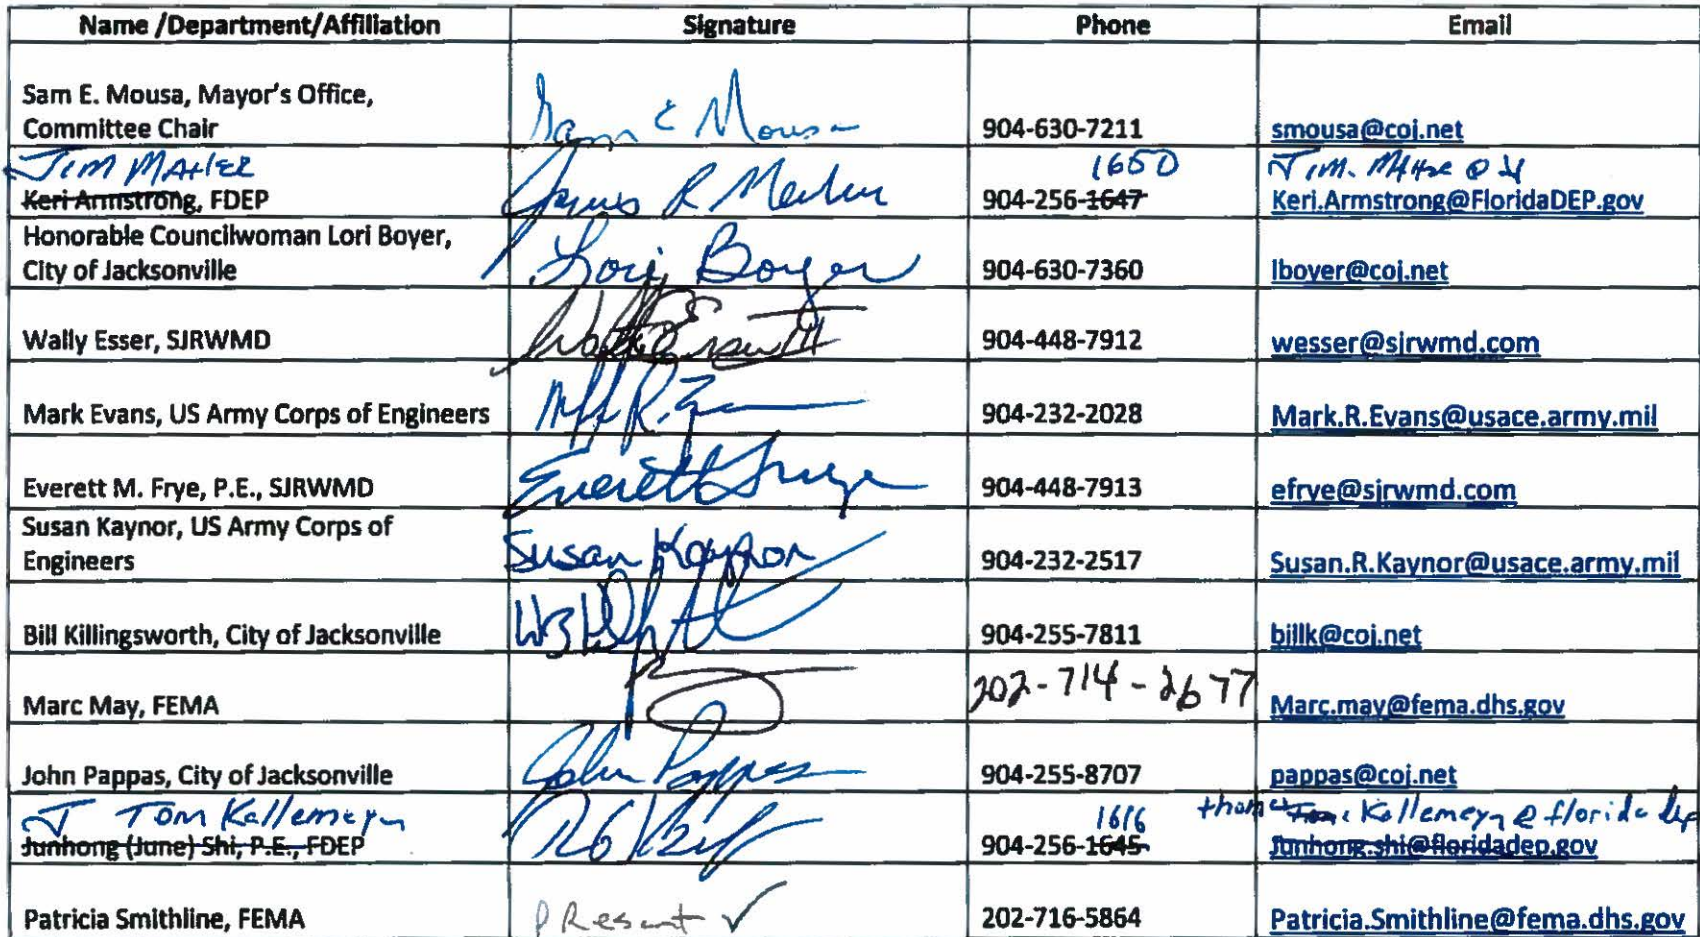 Name /Department/Affiliation Signature Phone Email
Sam E. Mousa, Mayor's Office,
Committee Chair Sam E Mousa 904-630-7211 smousa@coj.net
Jim Maher 1650 Jim.
Keri Armstrong, FDEP James R Maher 904-256-1647 Keri.Armstrong@FloridaDEP.gov
Honorable Councilwoman Lori Boyer,
City of Jacksonville Lori Boyer 904-630-7360 lboyer@coj.net
Wally Esser, SJRWMD 904-448-7912 wesser@sjrwmd.com
Mark Evans, US Army Corps of Engineers 904-232-2028 Mark.R.Evans@usace.army.mil
Everett M. Frye, P.E., SJRWMD Everett Frye 904-448-7913 efrye@sjrwmd.com
Susan Kaynor, US Army Corps of
Engineers Susan Kaynor 904-232-2517 Susan.R.Kaynor@usace.army.mil
Bill Killingsworth, City of Jacksonville 904-255-7811 billk@coj.net
Marc May, FEMA 202-714-2677 Marc.may@fema.dhs.gov
John Pappas, City of Jacksonville John Pappas 904-255-8707 pappas@coj.net
J Tom Kallemeyn 1616 Kallemeyn@floridadep
Junhong (June) Shi, P.E., FDEP 904-256-1645 Junhong.shi@floridadep.gov
Patricia Smithline, FEMA PResent ✓ 202-716-5864 Patricia.Smithline@fema.dhs.gov